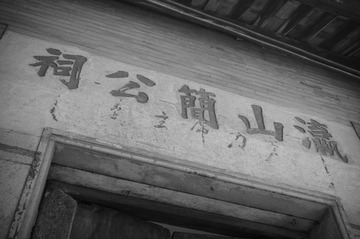 瀛山簡公祠